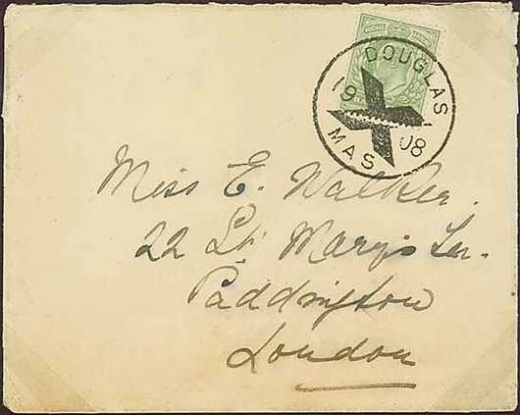 DOUGLAS
19 08
MAS
Miss E. Walker.
22 St. Mary's Ter.
Paddington
London